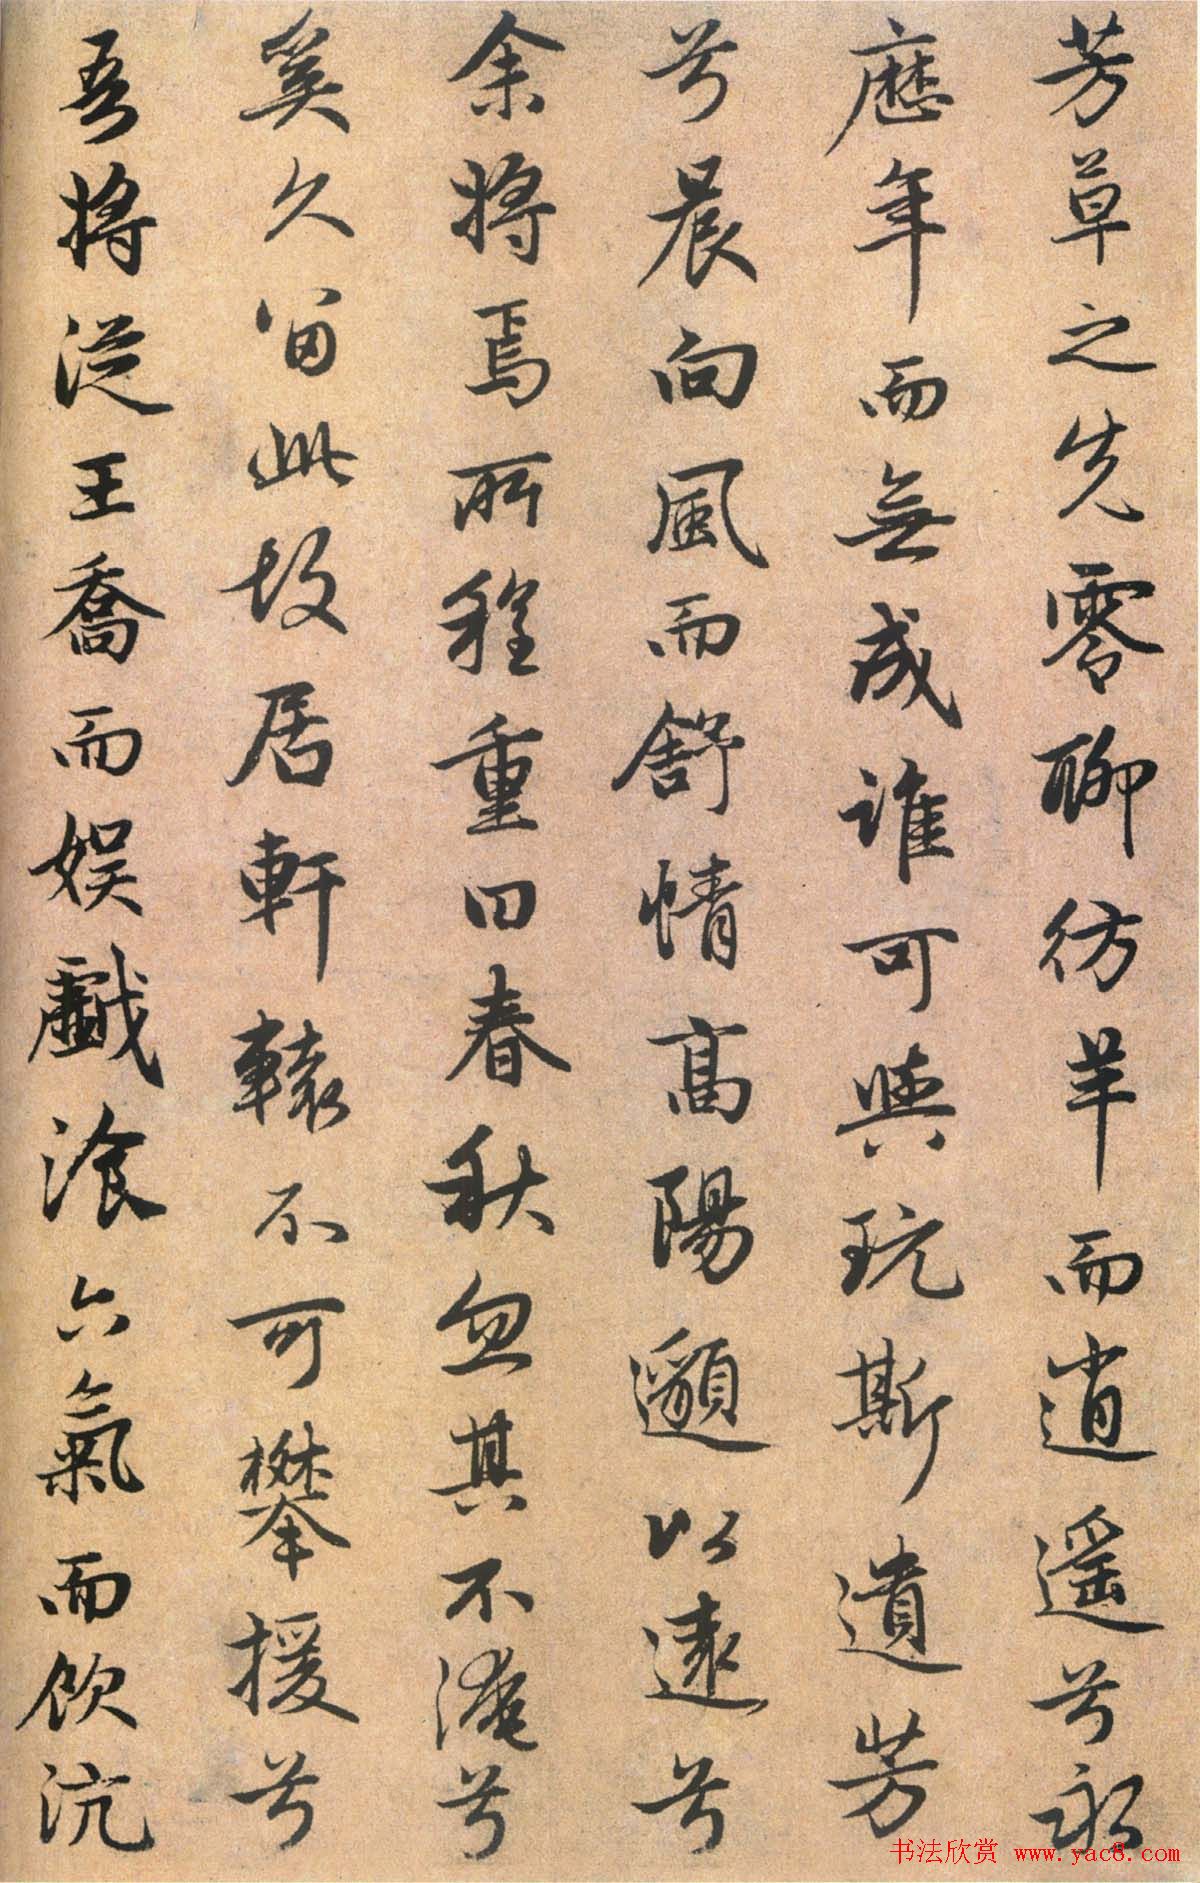 芳草之先零聊彷羊而逍遥兮永
歷年而無成誰可與玩斯遺芳
兮晨向風而舒情高陽邈以遠兮
余將焉所程重曰春秋忽其不淹兮
奚久留此故居軒轅不可攀援兮
吾將從王喬而娱戲飡六氣而飲沆
书法欣赏 www.yac8.com